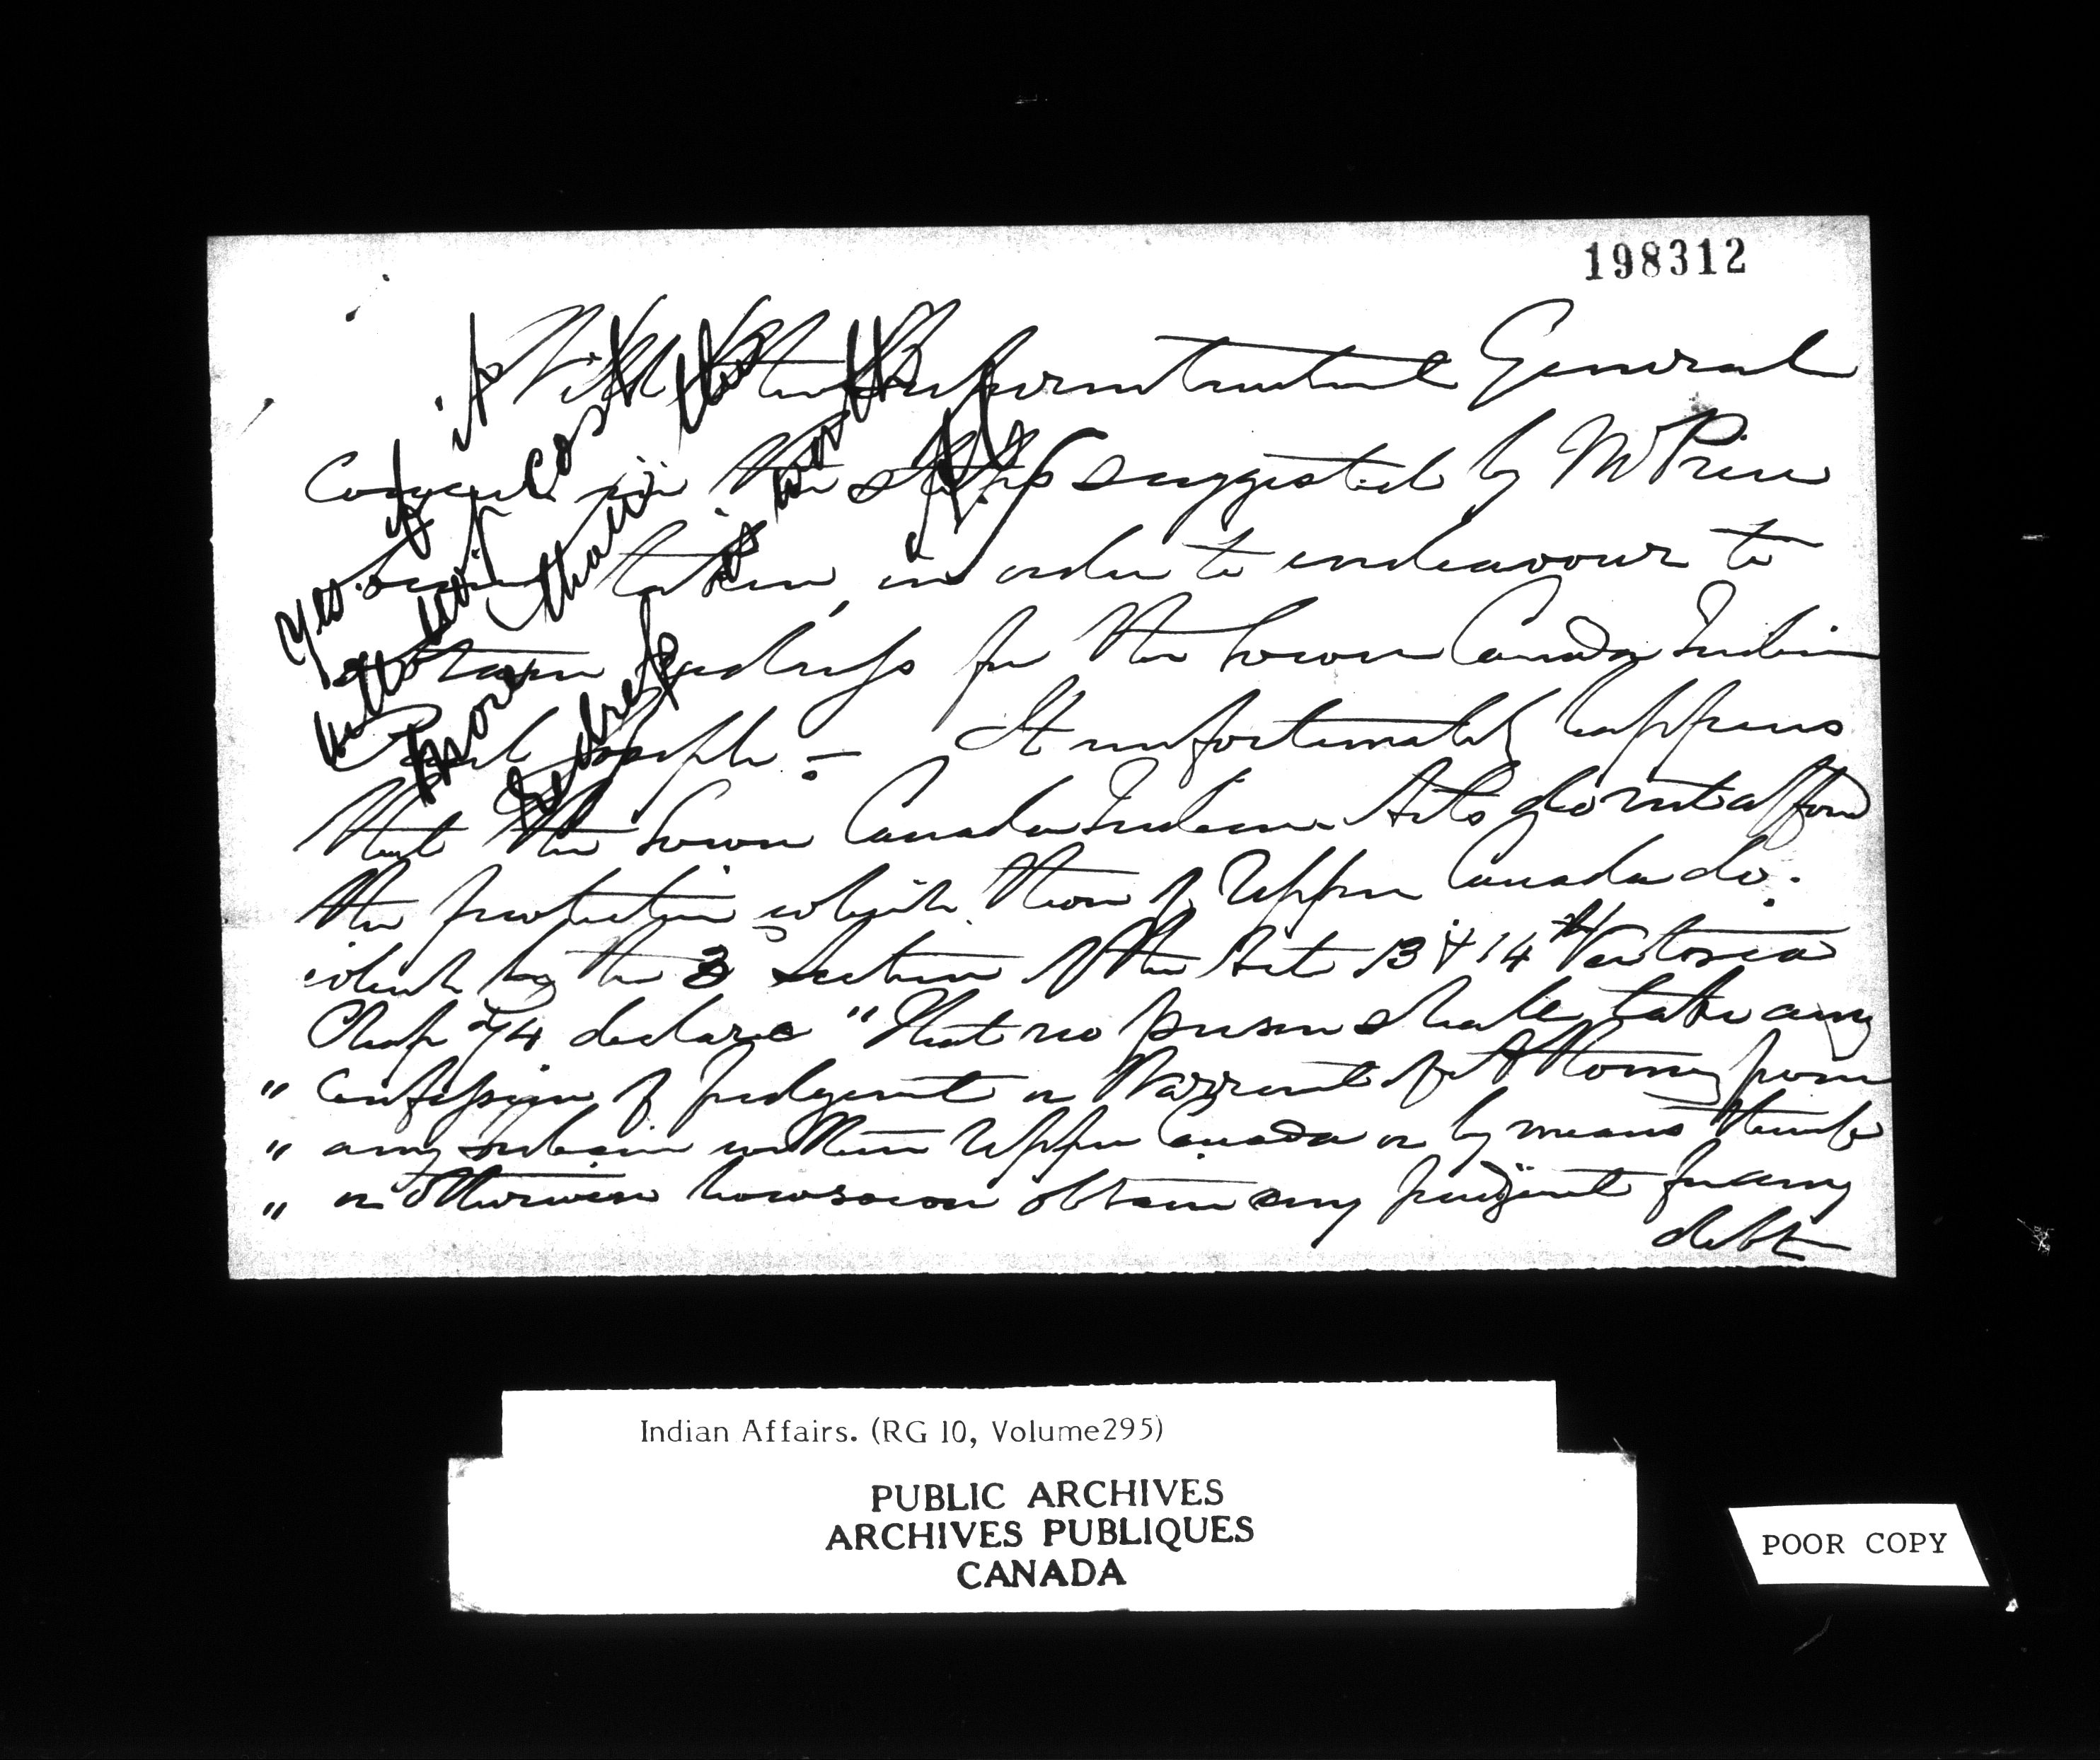 198312
Will the Superintendent General
Concur in the steps suggested by Mr Price
being taken, in order to endeavour to
obtain redress for the Lower Canada Indian
Paul Joseph :- It unfortunately happens
that the Lower Canada Indian Acts do not afford
the protection which those of Upper Canada do.
which by the 3 Section of the Act 13 & 14th Victoria
Chap 74 declare "That no person shall take any
" Confession of Judgment or Warrant of Attorney from
" any Indian within Upper Canada or by means thereof
" or otherwise howsoever obtain any Judgment for any
debt
Yes. if
it cost
but
more than it is worth
Indian Affairs. (RG 10, Volume295)
PUBLIC ARCHIVES
ARCHIVES PUBLIQUES
CANADA
POOR COPY